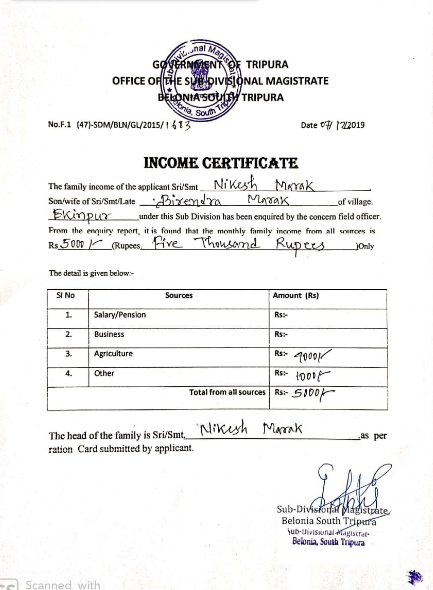 GOVERNMENT OF TRIPURA
OFFICE OF THE SUB-DIVISIONAL MAGISTRATE
BELONIA SOUTH TRIPURA
No.F.1 (47)-SDM/BLN/GL/2015/1683 Date 07/12/2019
INCOME CERTIFICATE
The family income of the applicant Sri/Smt Nikesh Marak
Son/wife of Sri/Smt/Late Birendra Marak of village.
Ekinpur under this Sub Division has been enquired by the concern field officer.
From the enquiry report, it is found that the monthly family income from all sources is
Rs 5000/- (Rupees, Five Thousand Rupees )Only
The detail is given below:-
Sl No Sources Amount (Rs)
1. Salary/Pension Rs:-
2. Business Rs:-
3. Agriculture Rs:- 4000/-
4. Other Rs:- 1000/-
Total from all sources Rs:- 5000/-
The head of the family is Sri/Smt, Nikesh Marak ,as per
ration Card submitted by applicant.
Sub-Divisional Magistrate
Belonia South Tripura
Sub-Divisional Magistrate
Belonia, South Tripura
CS Scanned with